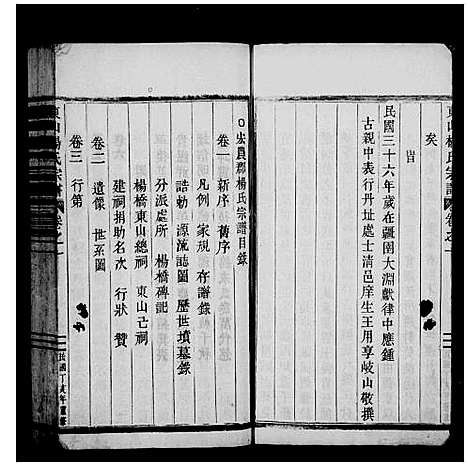 矣
旹
民國三十六年歲在彊圉大淵獻律中應鍾
古剡中表行丹址處士清邑庠生王用享岐山敬撰
東山楊氏宗譜 卷之一
弘農郡楊氏宗譜目錄
卷一 新序 舊序
凡例 家規 存譜錄
誥勅 源流誌圖 歷世墳墓錄
分派處所 楊橋碑記
楊橋東山總祠 東山己祠
建祠捐助名次 行狀 贊
卷二 遺像 世系圖
卷三 行第
東山楊氏宗譜 卷之一
民國丁亥年重修